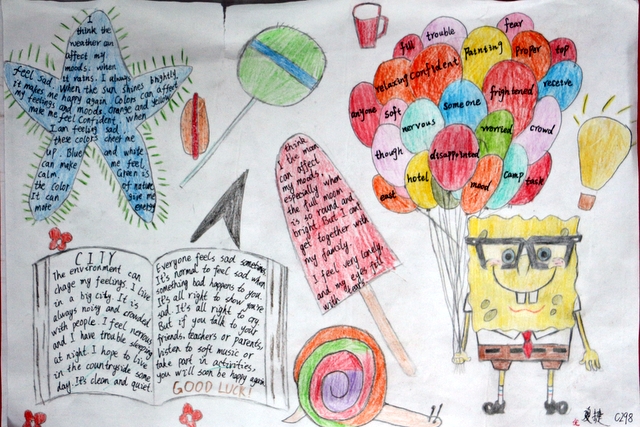 I
think the
weather can
affect my
moods. when
feel sad
it rains. I always
When the sun shines brightly,
it makes me happy again. Colors can affect
my feelings and moods. Orange and yellow
make me feel confident. when
I am feeling sad,
these colors cheer me
up. Blue and white
can make me feel
calm. Green is
the color of nature.
It can give me
more energy
think
the moon
can affect
my moods
especially when
the full moon
is so round and
bright. But I can't
get together with
my family
I feel very lonely,
and my eyes fill
with tears
fear
trouble
full
painting
proper
top
relaxing
confident
receive
frightened
anyone
soft
someone
nervous
worried
crowd
though
disappointed
hotel
east
mood
camp
task
CITY
The environment can
chage my feelings. I live
in a big city. It is
always noisy and crowded
with people. I feel nervous
and I have trouble sleeping
at night. I hope to live
in the countryside some
day. It's clean and quiet.
Everyone feels sad sometimes.
It's normal to feel sad when
something bad happens to you.
It's all right to show you're
sad. It's all right to cry.
But if you talk to your
friends, teachers or parents,
listen to soft music or
take part in activities,
you will soon be happy again.
GOOD LUCK!
C298